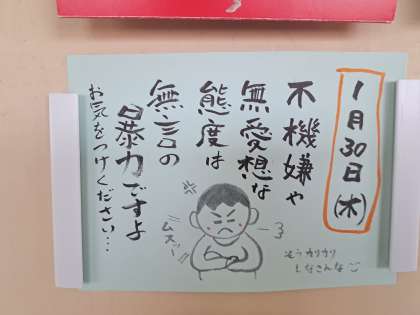 1月30日(木)
不機嫌や
無愛想な
態度は
無言の
暴力ですよ
お気をつけください…
ムスッ
そうカリカリ
しなさんな